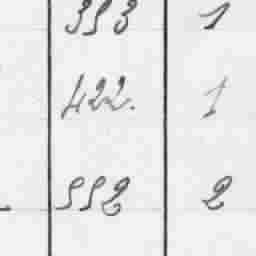 393 1
422. 1
552 2